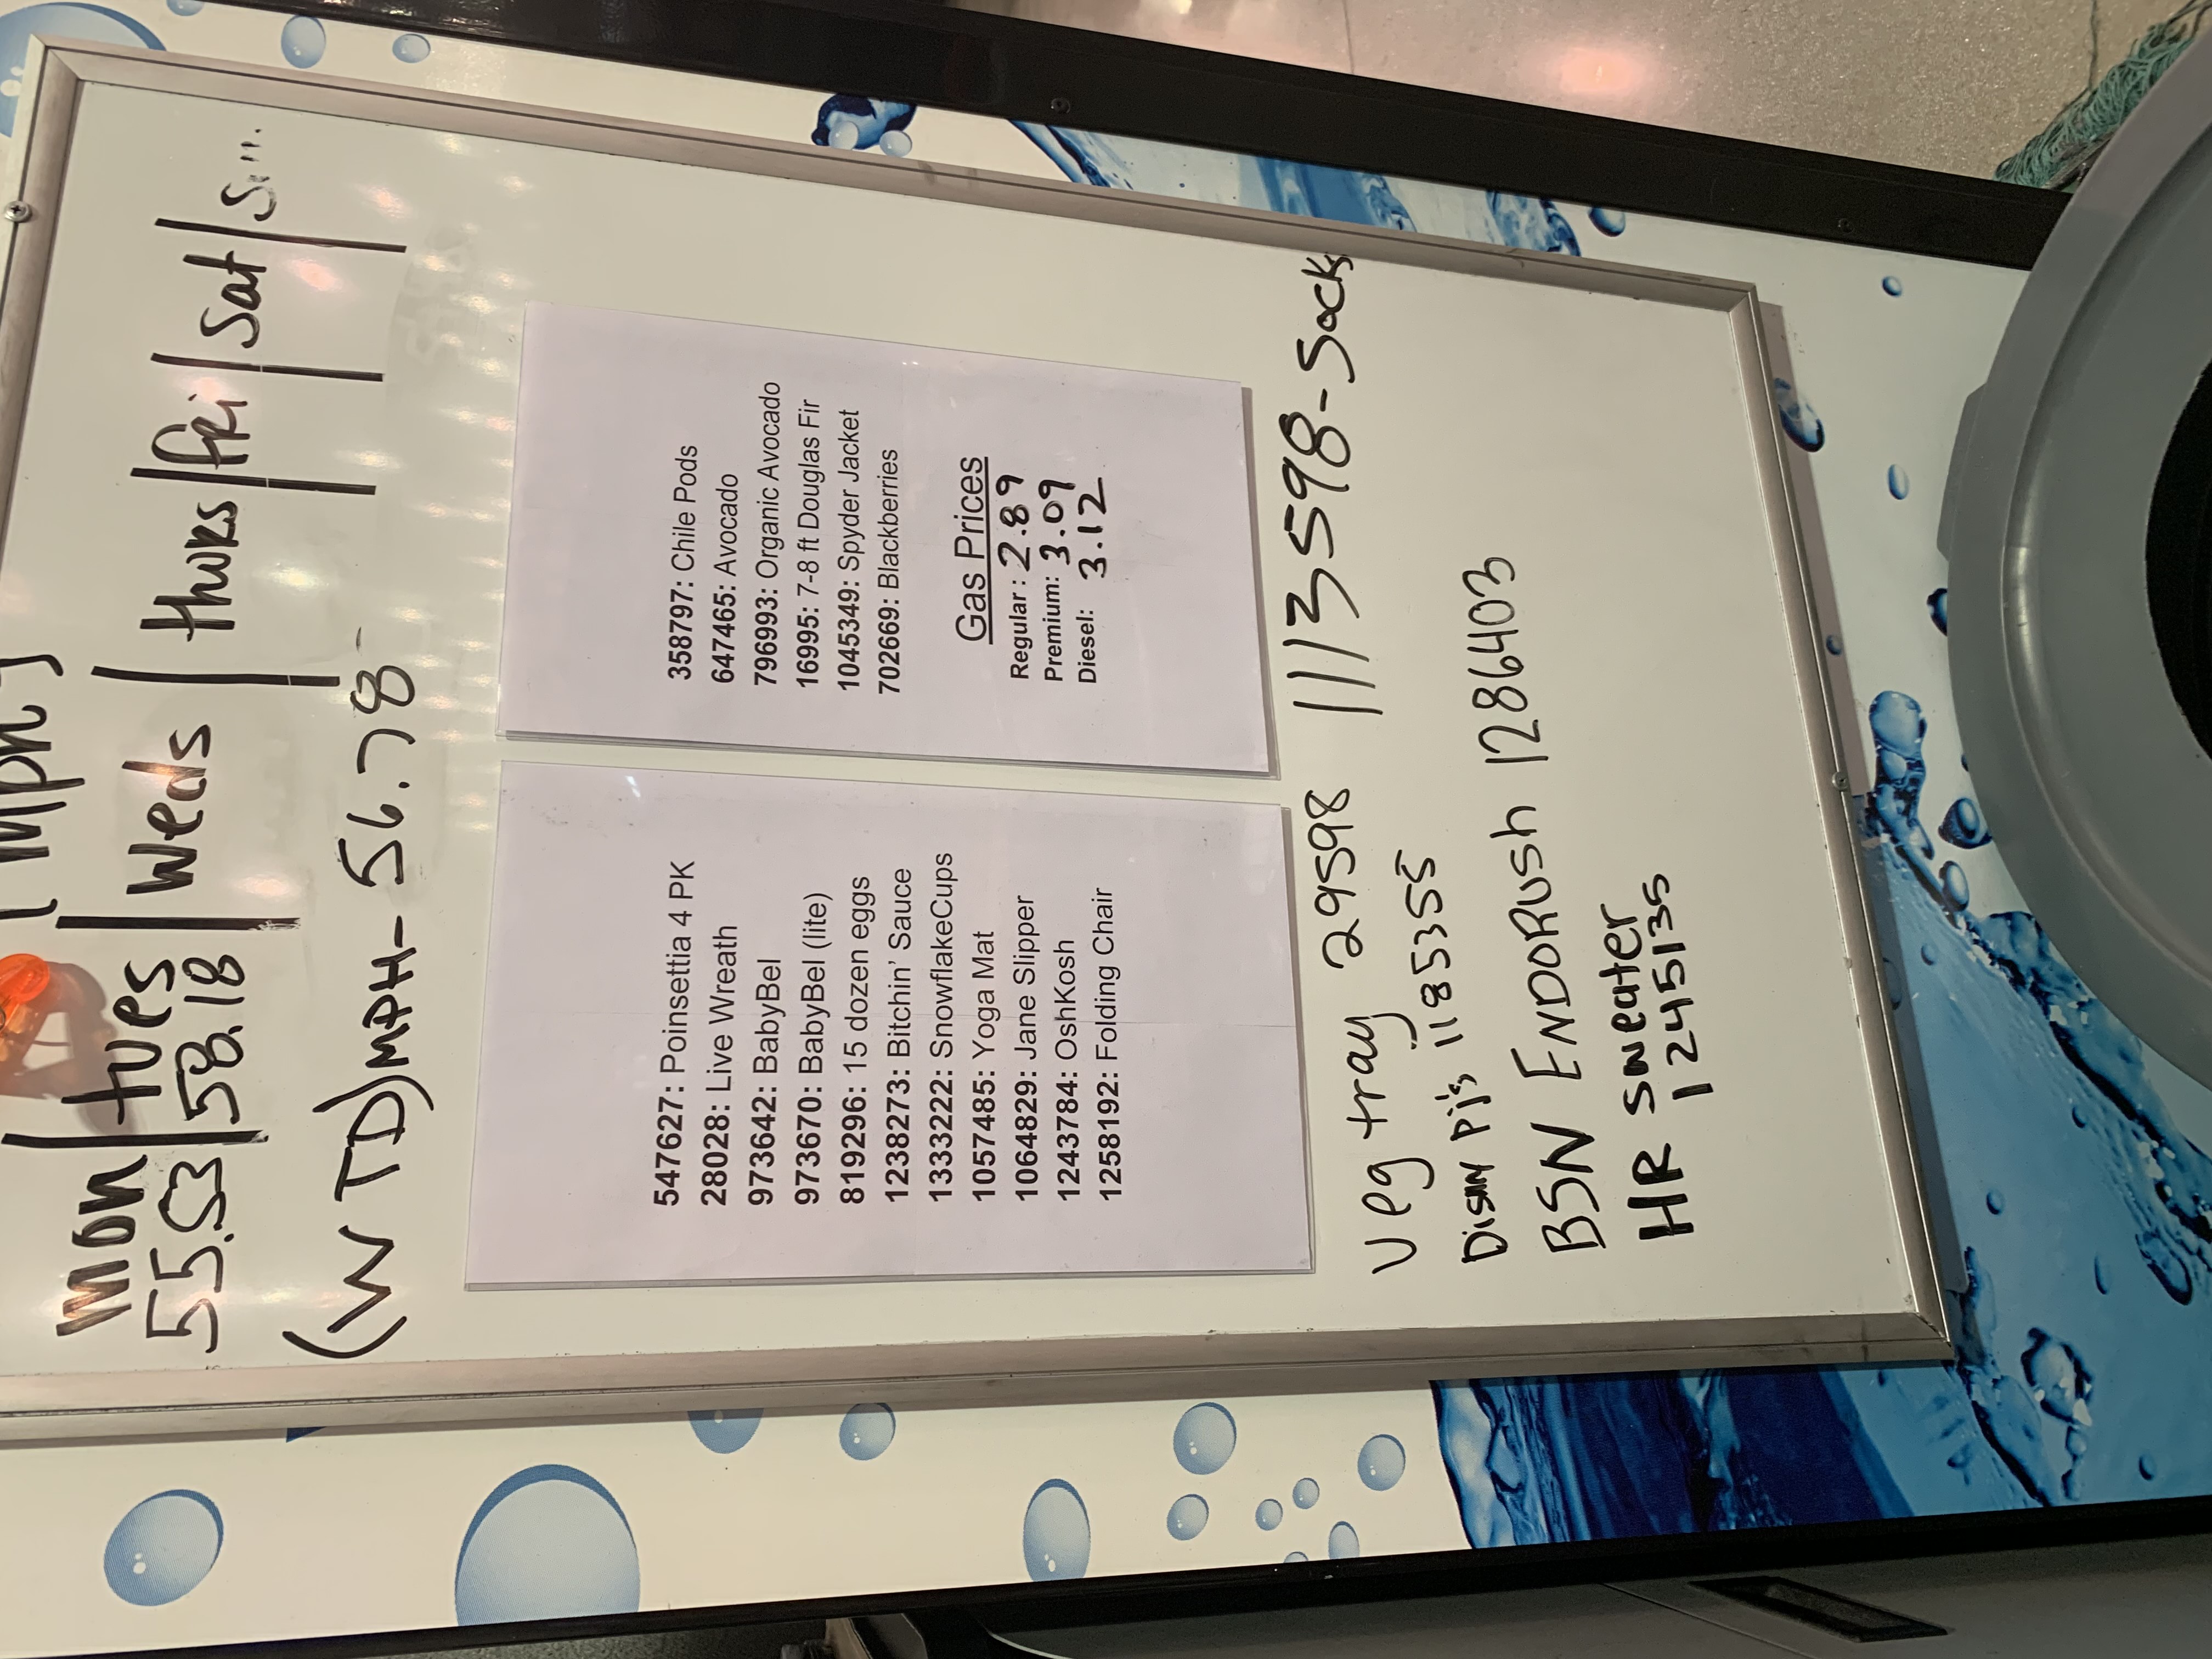 [mph]
mon | tues | weds | thurs | fri | sat | s....
55.53 | 58.18
(WTD) MPH- 56.78
547627: Poinsettia 4 PK
28028: Live Wreath
973642: BabyBel
973670: BabyBel (lite)
819296: 15 dozen eggs
1238273: Bitchin' Sauce
1333222: SnowflakeCups
1057485: Yoga Mat
1064829: Jane Slipper
1243784: OshKosh
1258192: Folding Chair
358797: Chile Pods
647465: Avocado
796993: Organic Avocado
16995: 7-8 ft Douglas Fir
1045349: Spyder Jacket
702669: Blackberries
Gas Prices
Regular: 2.89
Premium: 3.09
Diesel: 3.12
Veg tray 29598
1113598-Socks
Disny Pj's 1185355
BSN ENDORUSh 1286403
HR sweater
1245135